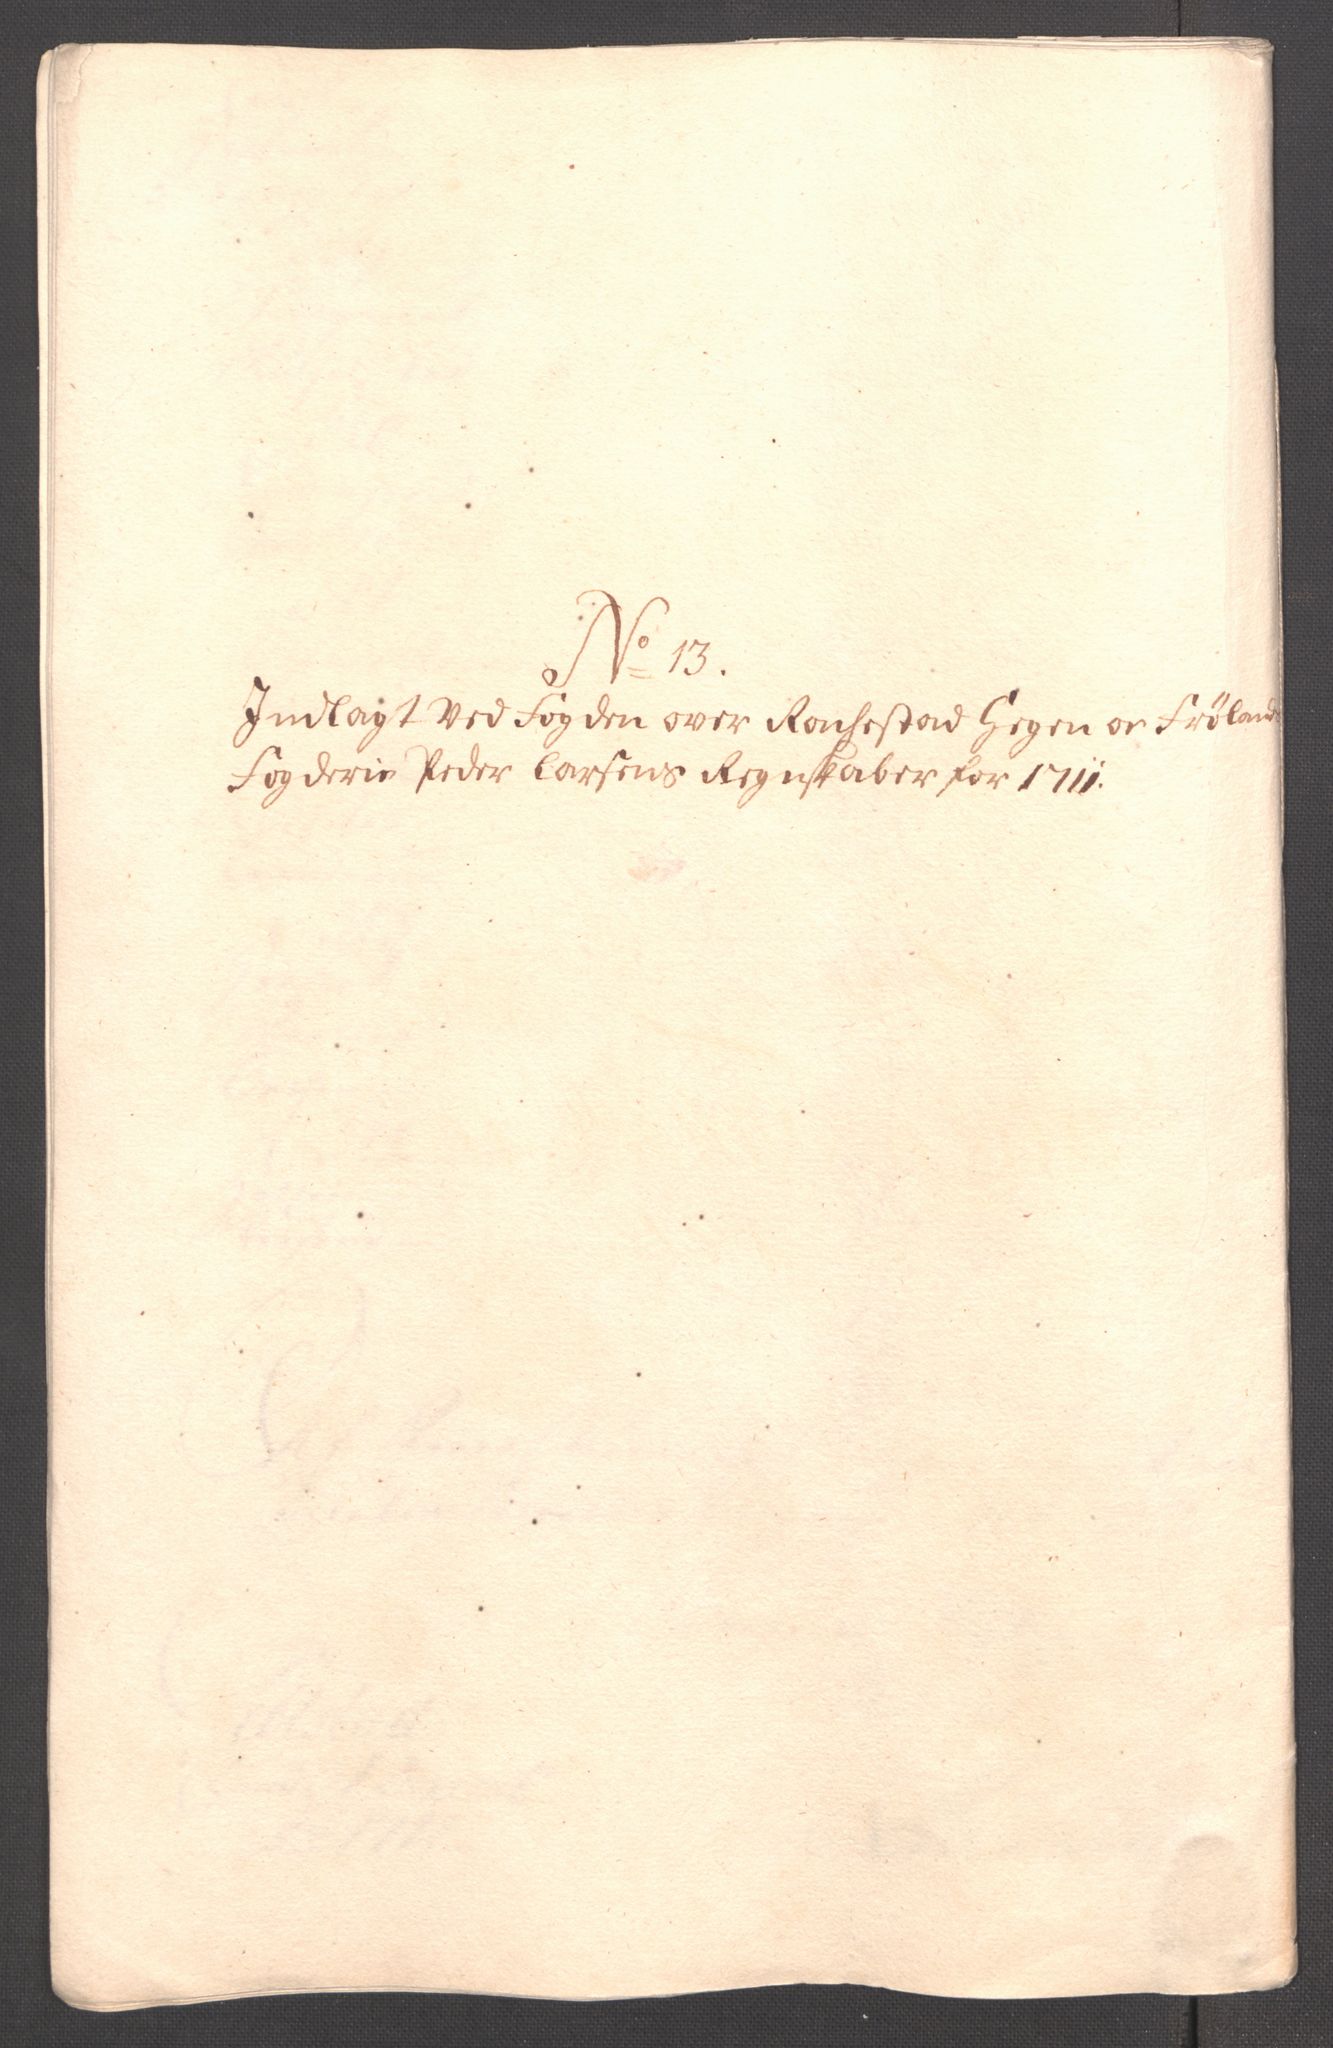 No 13.
Indlagt Ved Fogden over Rachestad Hegen oc Frølands
Fogderie Peder Larsens Regnskaber for 1711.